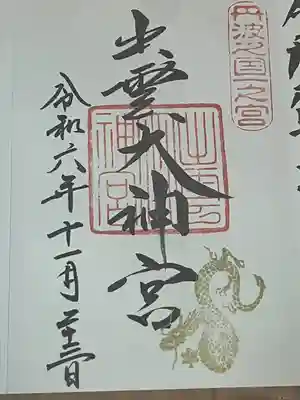 丹波國一之宮
出雲大神宮
出雲大神宮
令和六年十一月二十三日